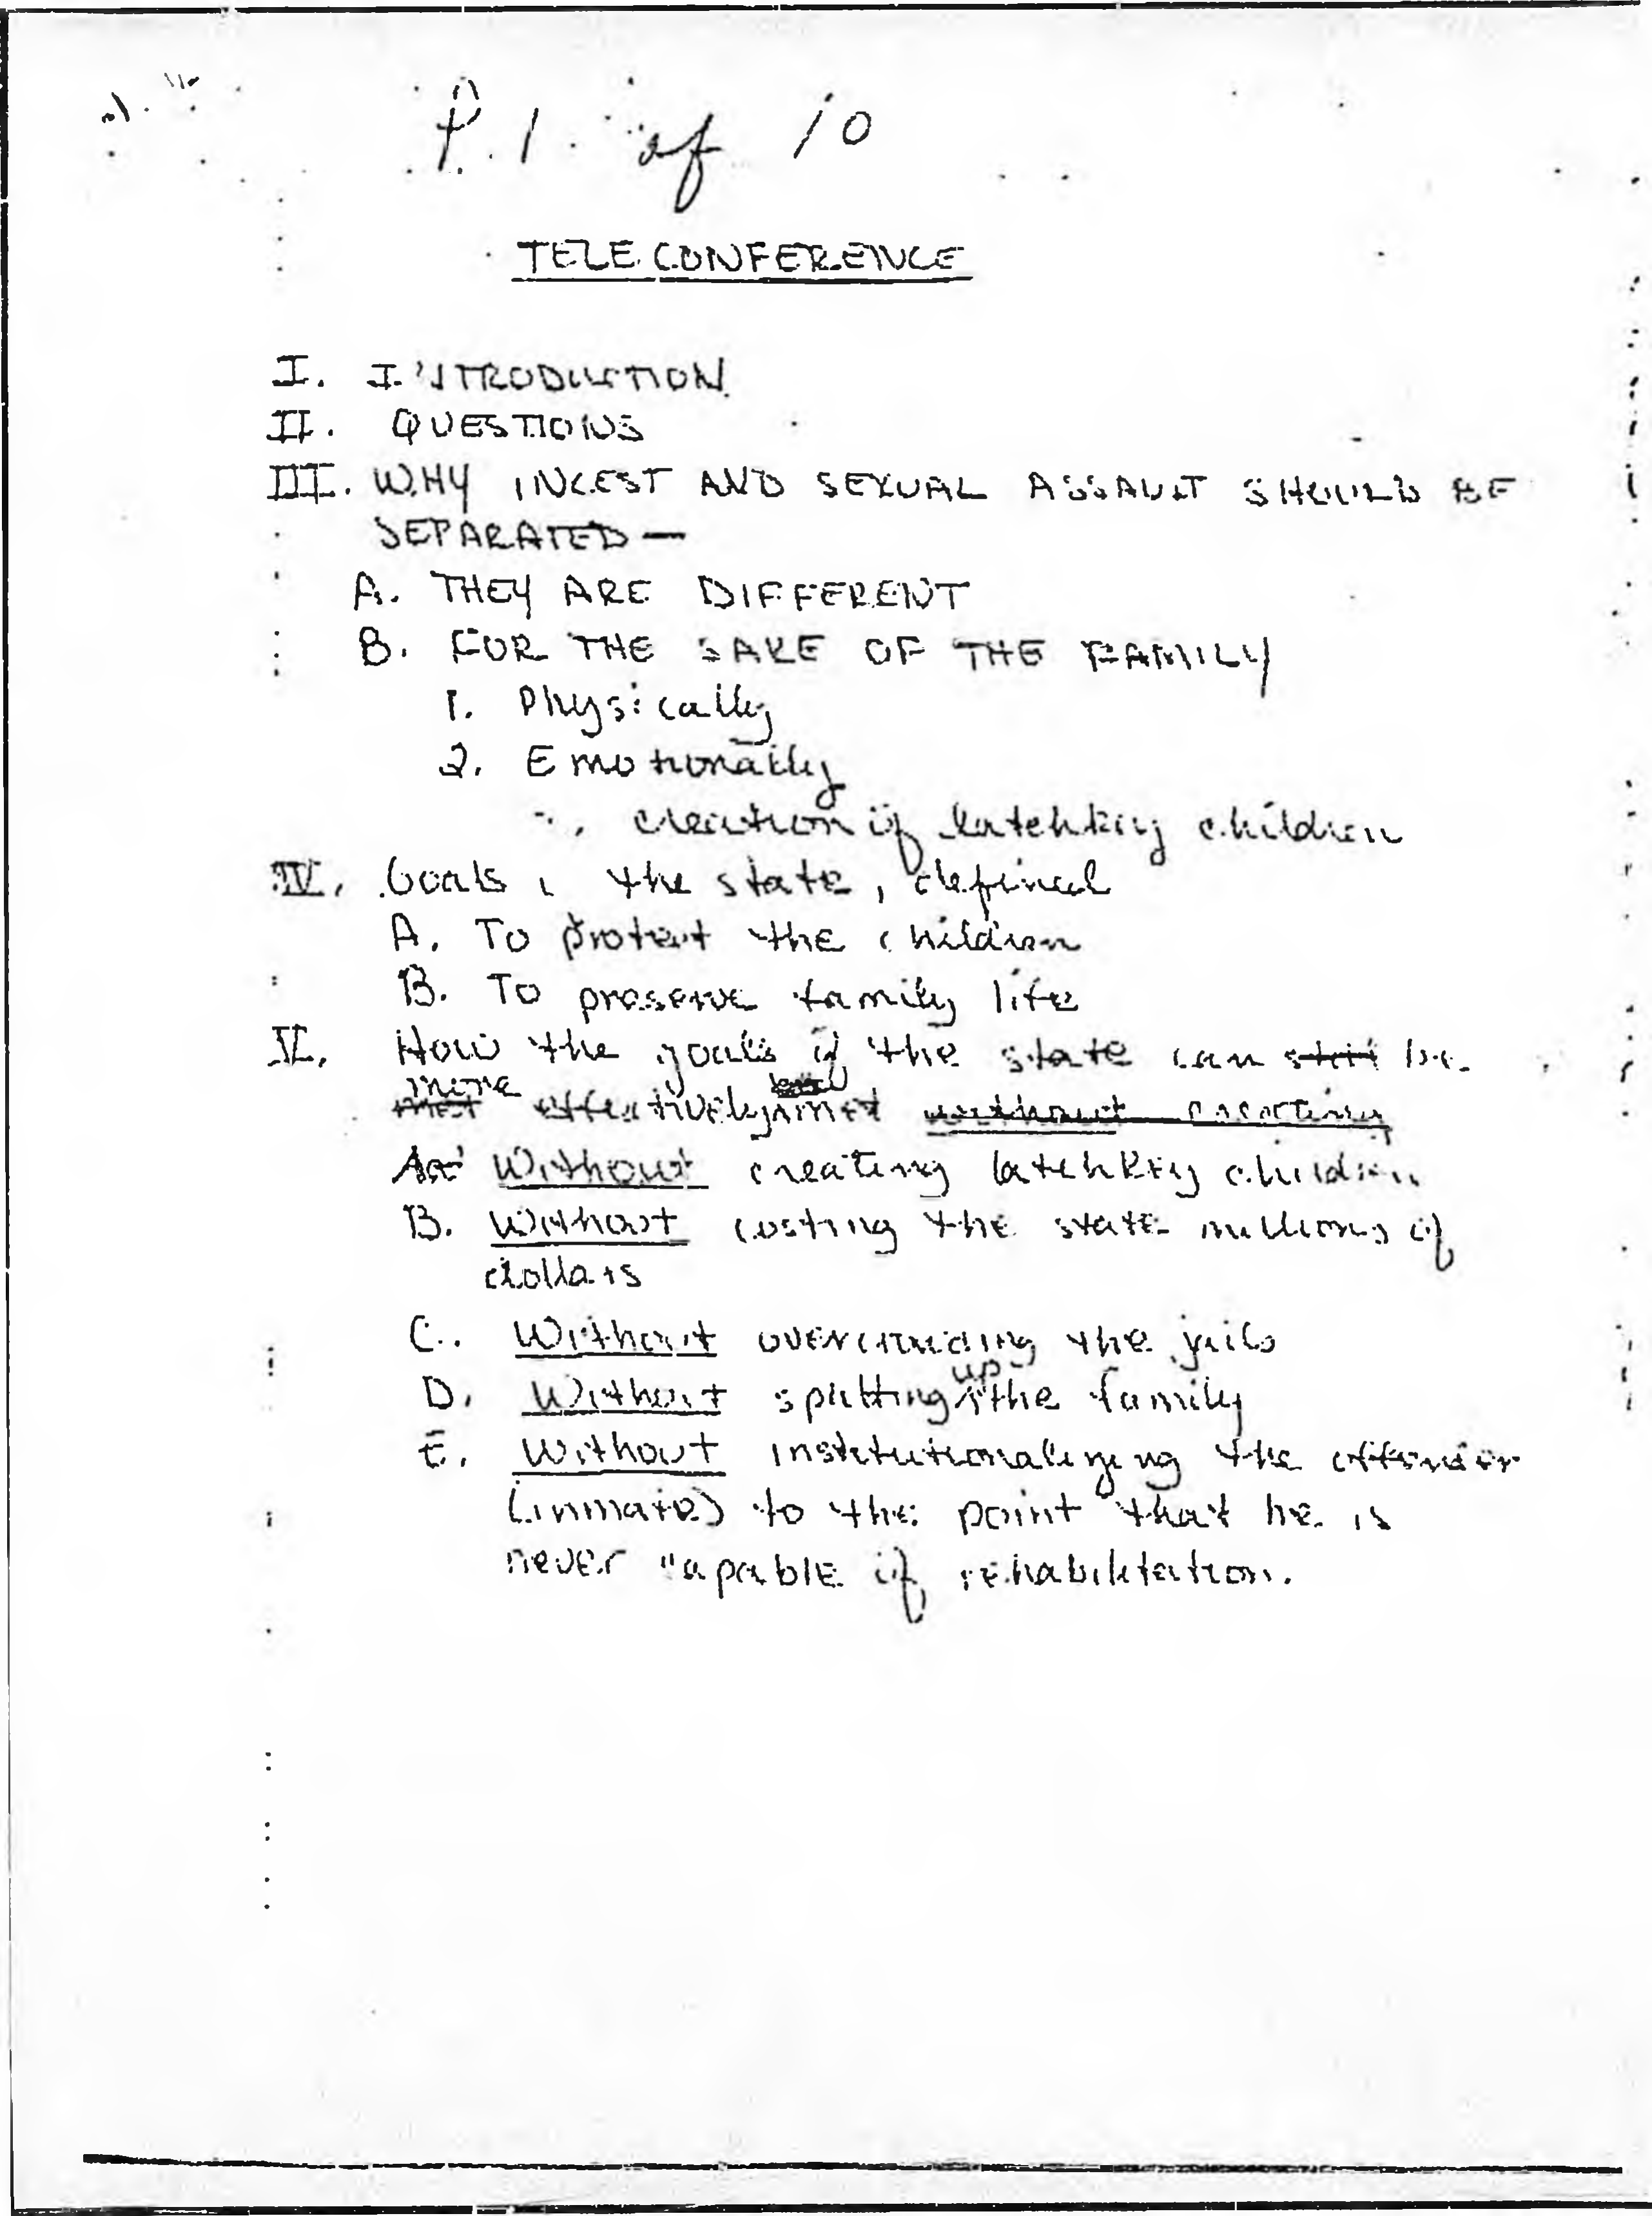 P. 1. of 10
TELECONFERENCE
I. INTRODUCTION
II. QUESTIONS
III. WHY INCEST AND SEXUAL ASSAULT SHOULD BE
SEPARATED—
A. THEY ARE DIFFERENT
B. FOR THE SAKE OF THE FAMILY
1. Physically
2. Emotionally
creation of latchkey children
IV. Goals, the state, defined
A. To protect the children
B. To preserve family life
V. How the goals of the state can still be
more
met effectively met without creating
A. Without creating latchkey children
B. Without costing the state millions of
dollars
C. Without overcrowding the jails
D. Without splitting up the family
E. Without institutionalizing the offender
(inmate) to the point that he is
never capable of rehabilitation.